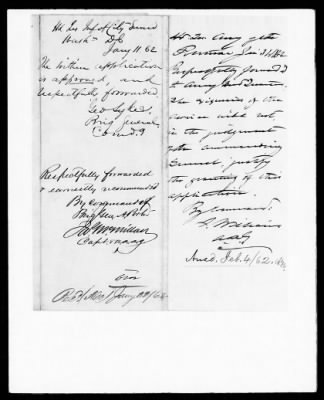 Hd Qrs Inf. of City Guard
Wash D.C.
Jany 11 62
The within application
is approved, and
respectfully forwarded
Geo Sykes,
Brig General
Comd.g
Respectfully forwarded
& earnestly recommended
By Command of
Brig Gen A Porter
Capt
over
Hd. Qrs. Army of the
Potomac Jan 21 1862
Respectfully forward'd
to
The exigencies of the
service will not,
in the judgment
of the commanding
General, justify
the granting of this
application.
By command.
S. Williams
A.A.G.
Feb. 4/62.